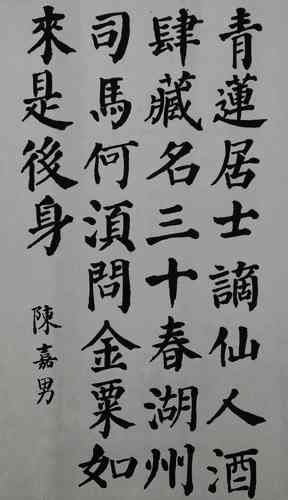 青蓮居士謫仙人酒
肆藏名三十春湖州
司馬何須問金粟如
來是後身
陳嘉男